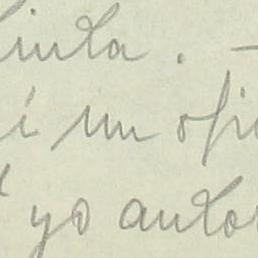 inta. –
í un ofi
yo autor